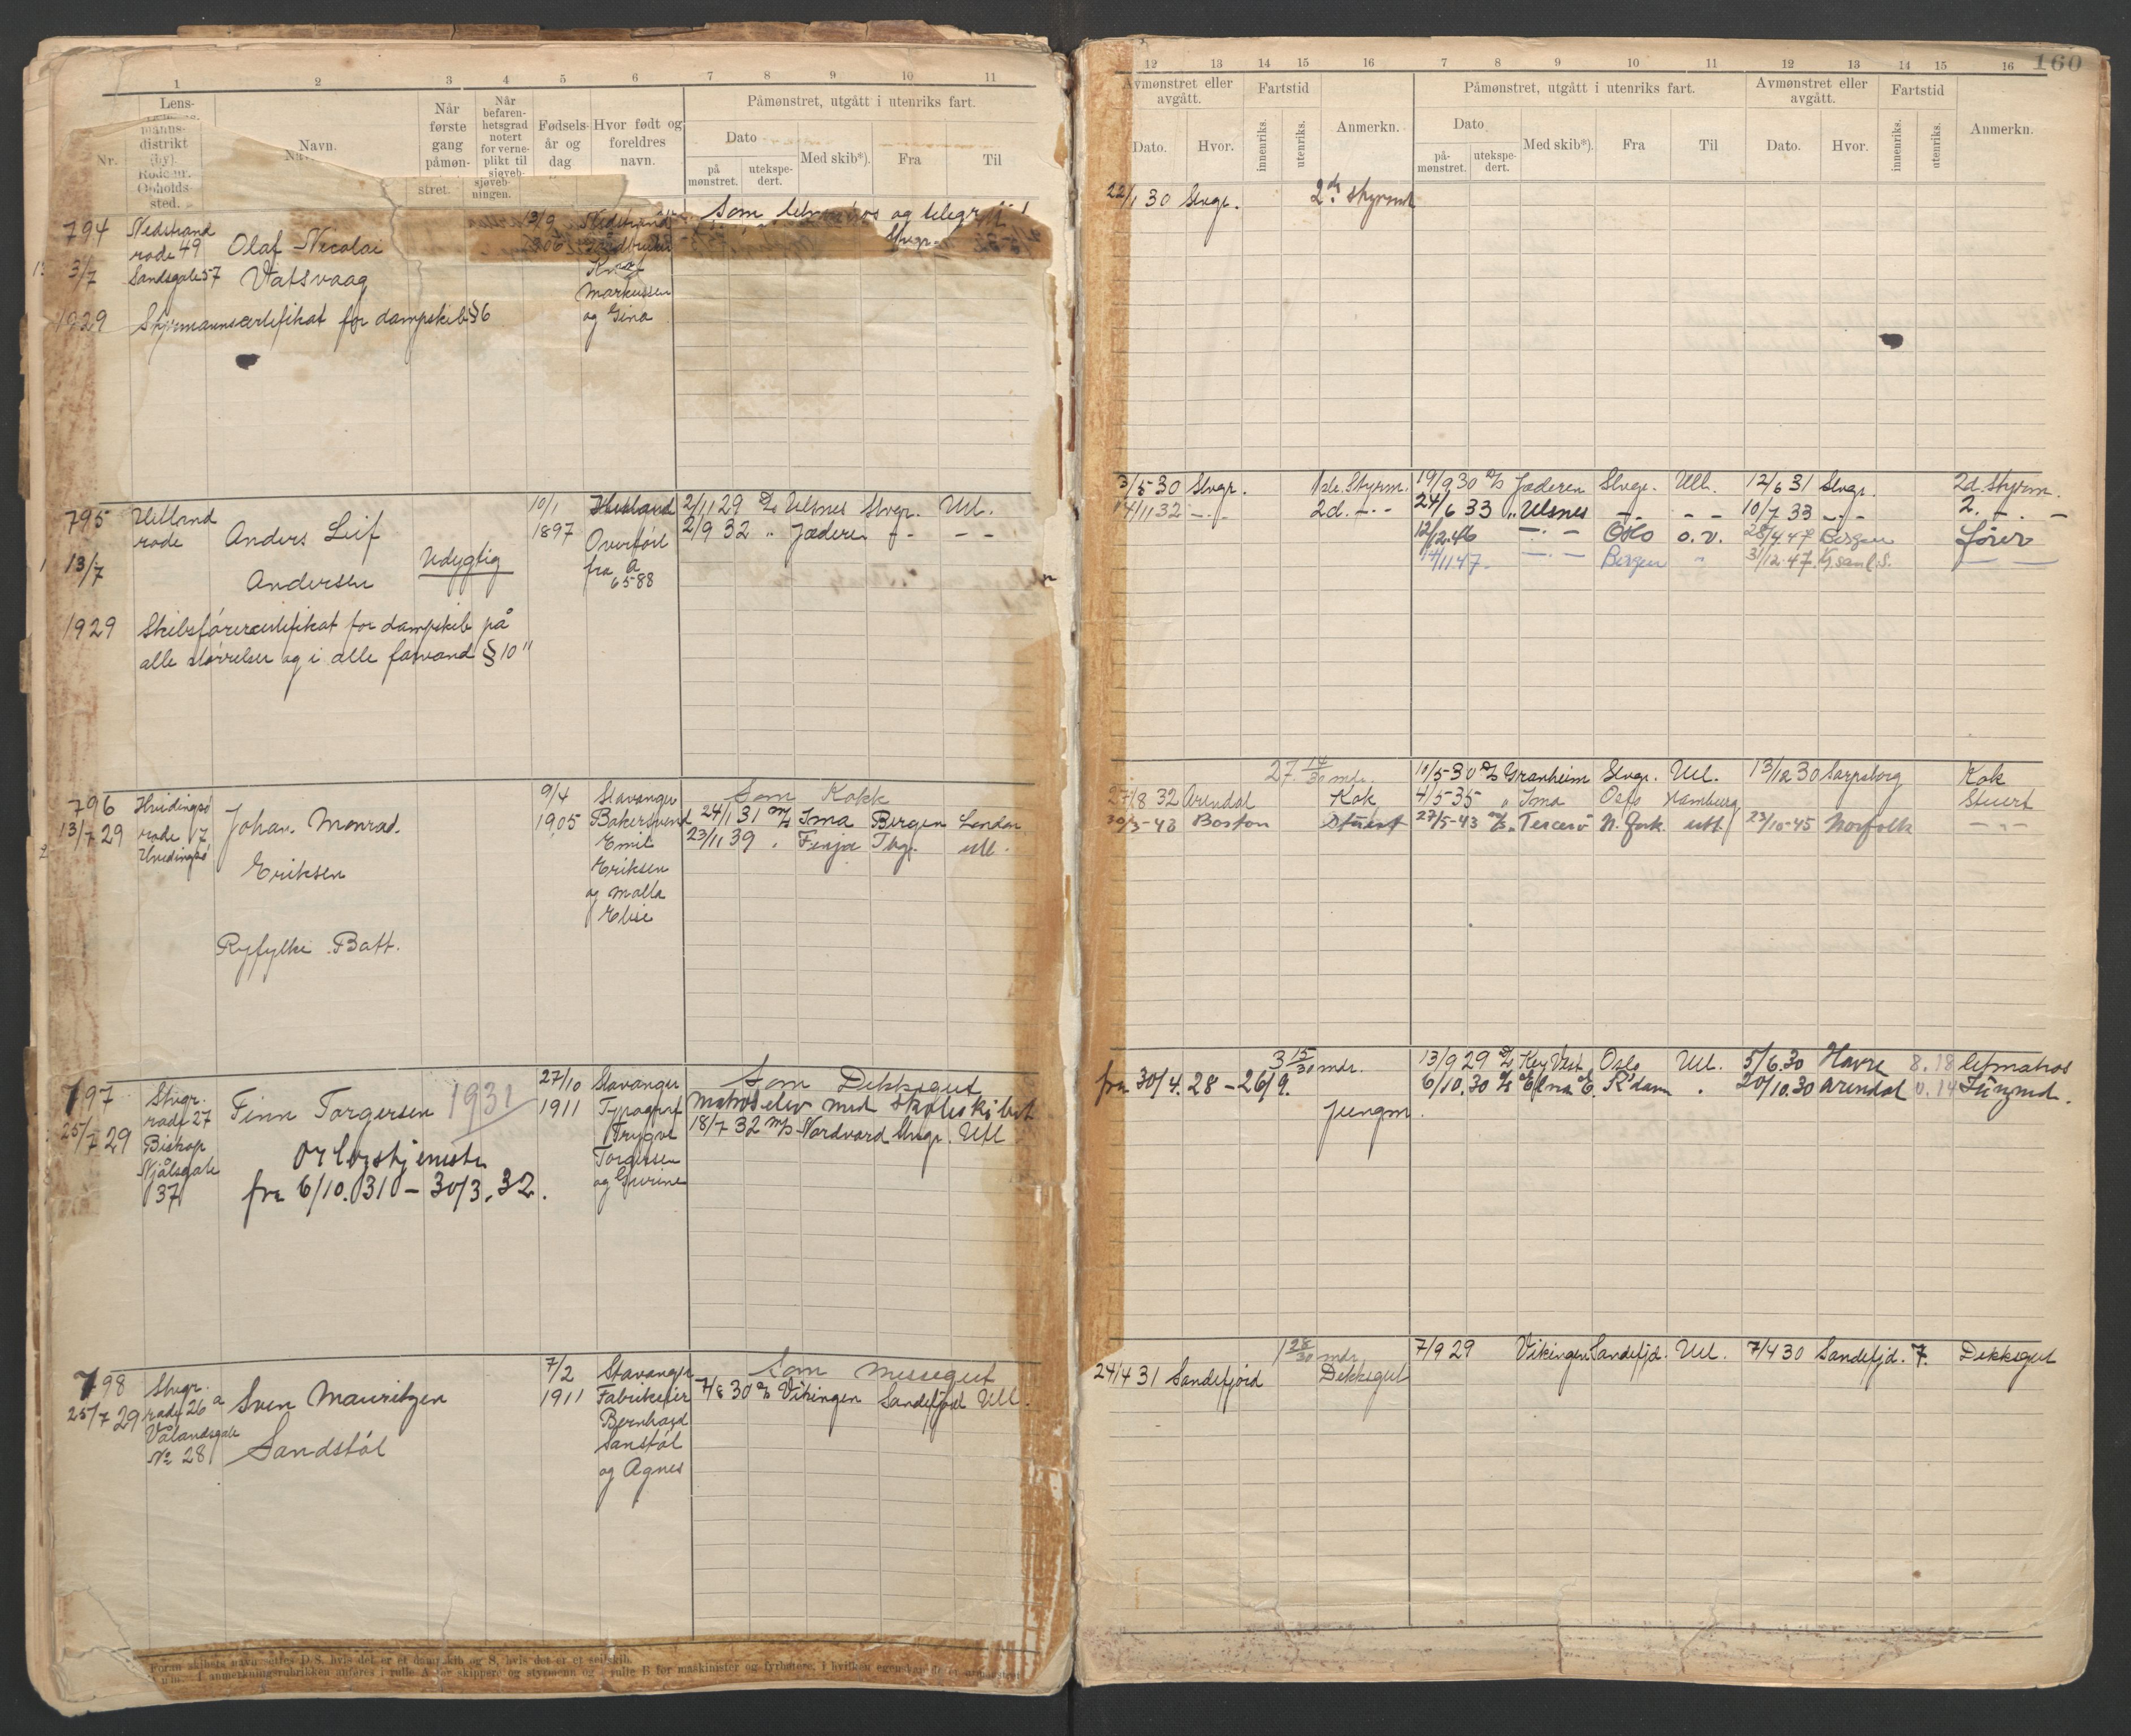 1 2 3 4 5 6 7 8 9 10 11
Nr.
Lens-
manns-
distrikt
(by).
Rode nr.
Opholds-
sted.
Navn.
Når
første
gang
påmøn-
stret.
Når
befaren-
hetsgrad
notert
for verne-
plikt til
sjøveb-
ningen.
Fødsels-
år og
dag
Hvor født og
foreldres
navn.
Påmønstret, utgått i utenriks fart.
Dato
på
mønstret.
utekspe-
dert.
Med skib*).
Fra
Til
794 Nedstrand 13/9 Nedstrand Som
rode 49 Olaf Nicolai
3/7 Sandsgate 57 Vatsvaag
Markussen
1929 Styrmannscertifikat for dampskib §6 og Gina
795 Hetland 10/1 Hetland 2/11 29 D/S Ulsnes Stvgr. Utl.
rode Anders Leif 1897 Overført 2/9 32 " Jæderen - - -
13/7 Andersen Udygtig fra A
6588
1929 Skibsførercertifikat for dampskib på
alle størrelser og i alle farvand § 10"
796 Hvidingsø Johan Monrad. 9/4 Stavanger Som Kokk
13/7 29 rode 17 1905 Bakersvend 24/1 31 M/S Ima Bergen London
Hvidingsø Emil 23/11 39 " Finja Tbg. utl.
Eriksen Eriksen
og Malla
Elise
Ryfylke Batt.
797 Stvgr. Finn Torgersen 1931 27/10 Stavanger Som Dekksgut
rode 27 1911 Typograf Matroselev med skoleskibet
25/7 29 Biskop Trygve 18/7 32 M/S Nordvard Stvgr. Utl
Njålsgate Orlogstjeneste Torgersen
37 fra 6/10.31 - 30/3.32. og Gurine
798 Stvgr. Sven Mauritzen 7/2 Stavanger Som Messegut
25/7 29 rode 26a 1911 Fabrikeier 7/8 30 D/S Vikingen Sandefjord Utl.
Vålandsgate Bernhard
No 28 Sandstøl Sanstøl
og Agnes
Foran skibets navn settes D/S. hvis det er et dampskib og S, hvis det er et seilskib.
I anmerkningsrubrikken anføres i rulle A for skippere og styrmenn og i rulle B for maskinister og fyrbøtere, i hvilken egenskap de er påmønstret
160
12 13 14 15 16 7 8 9 10 11 12 13 14 15 16
Avmønstret eller
avgått.
Dato.
Hvor.
Fartstid
innenriks.
utenriks.
Anmerkn.
Påmønstret, utgått i utenriks fart.
Dato
på-
mønstret.
utekspe-
dert.
Med skib*).
Fra
Til
Avmønstret eller
avgått.
Dato.
Hvor.
Fartstid
innenriks.
utenriks.
Anmerkn.
22/1 30 Stvgr. 2d. styrm
3/5 30 Stvgr. 1ste. Styrm. 19/9 30 D/S Jæderen Stvgr. Utl. 12/6 31 Stvgr. 2d. styrm.
14/11 32 - - 2d. - - 24/6 33 " Ulsnes - - - - 10/7 33 - - 2. - -
12/12.46 - - Oslo o.v. 28/4 47 Bergen fører
14/11 47. - - Bergen " 31/12.47.
27 14/30 mdr. 10/5 30 D/S Granheim Stvgr. Utl. 13/12 30 Sarpsborg Kok
27/8 32 Arendal Kok 4/5 35 " Ima Oslo Hamburg Stuert
30/3-43 Boston Stuert 27/5-43 M/S Tercerø N. York utl. 23/10-45 Norfolk - -
3 15/30 mdr. 13/9 29 D/S Key Vest Oslo Utl. 5/6.30 Havre 8.18 letmatros
fra 30/4.28 - 26/9. 6/10.30 D/S Elna E. R'dam " 20/10.30 Arendal 0.14 Jungmd.
Jungm.
1 28/30 mdr 7/9 29 Vikingen Sandefjd. Utl. 7/4 30 Sandefjd. 7. Dekksgut
24/4 31 Sandefjord Dekksgut